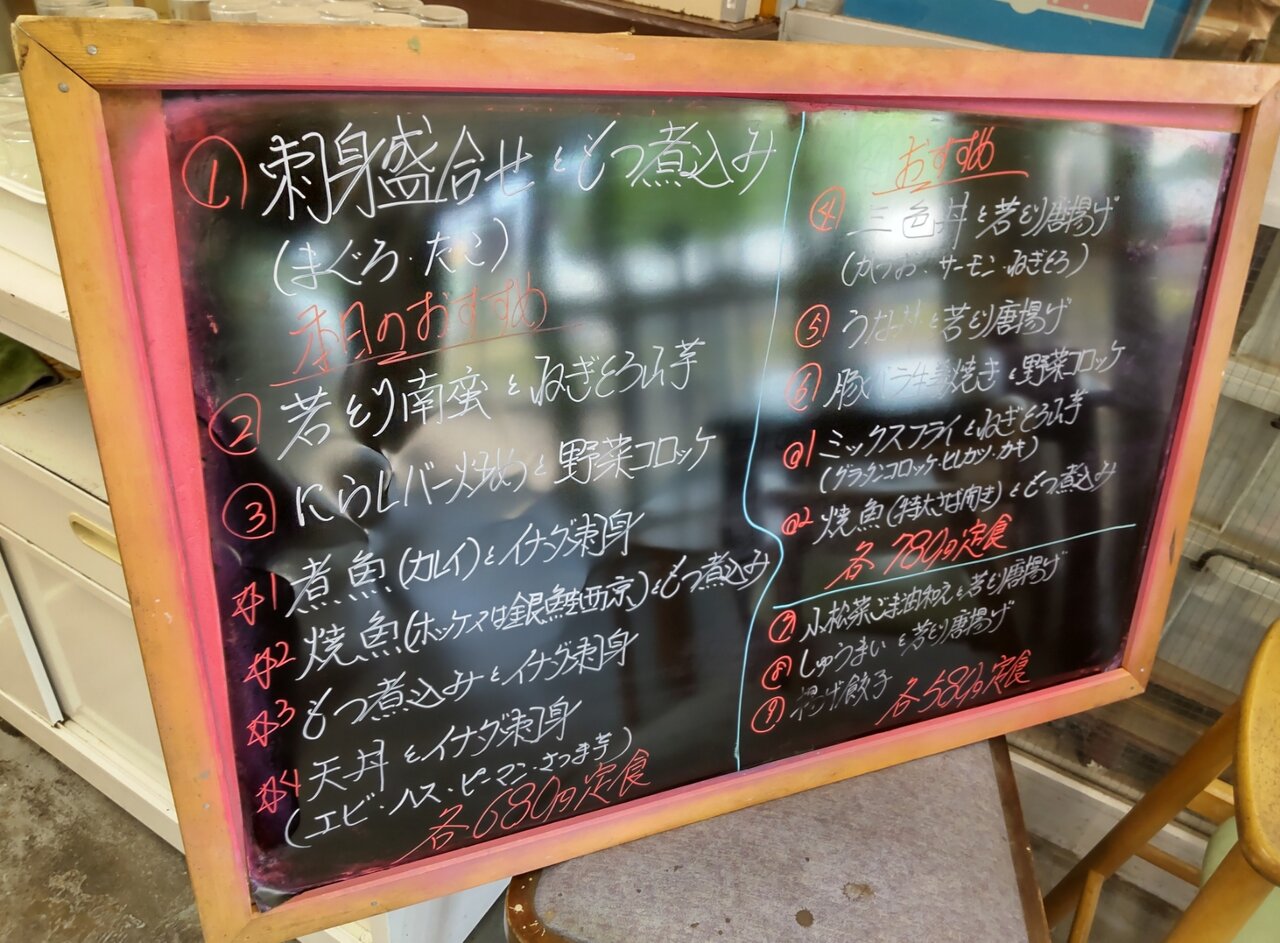 ① 刺身盛合せともつ煮込み
(まぐろ・たこ)
本日のおすすめ
② 若どり南蛮とねぎとろ山芋
③ にらレバー炒めと野菜コロッケ
本1 煮魚(カレイ)とイナダ刺身
本2 焼魚(ホッケ又は銀鮭西京)ともつ煮込み
本3 もつ煮込みとイナダ刺身
本4 天丼とイナダ刺身
(エビ・ハス・ピーマン・さつま芋)
各680円定食
おすすめ
④ 三色丼と若どり唐揚げ
(かつお・サーモン・ねぎとろ)
⑤ うな丼と若どり唐揚げ
⑥ 豚バラ生姜焼きと野菜コロッケ
@1 ミックスフライとねぎとろ山芋
(グラタンコロッケ・ヒレカツ・カキ)
@2 焼魚(特大さば開き)ともつ煮込み
各780円定食
⑦ 小松菜ごま油和えと若どり唐揚げ
⑧ しゅうまいと若どり唐揚げ
⑨ 揚げ餃子
各580円定食